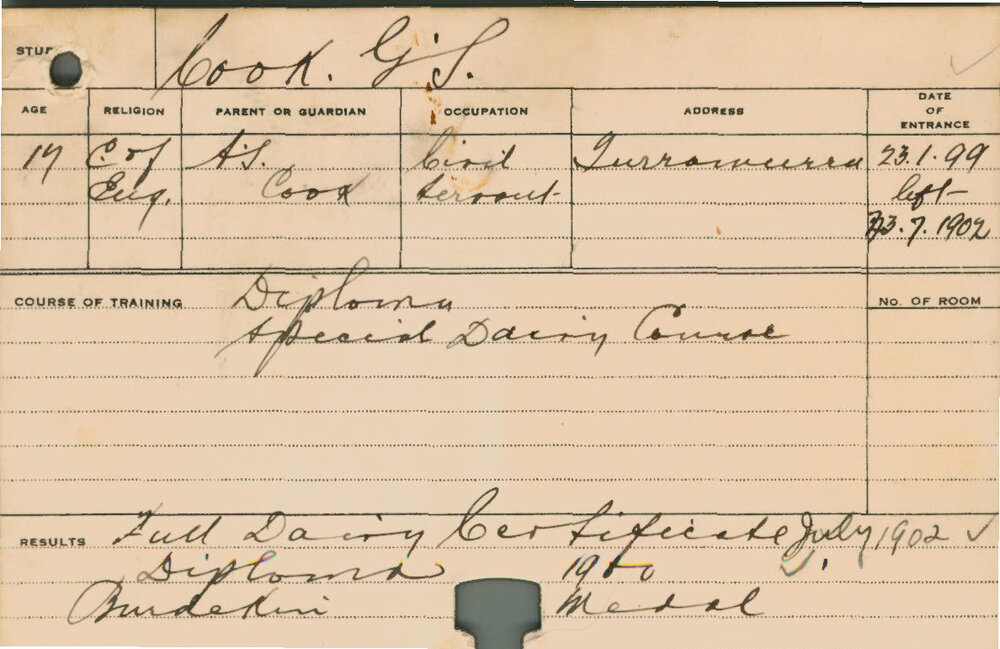 STUD Cook. G.S.
AGE RELIGION PARENT OR GUARDIAN OCCUPATION ADDRESS DATE OF ENTRANCE
17 C. of A.S. Civil Turramurra 23.1.99
Eng. Cook Servant left
23.7.1902
COURSE OF TRAINING Diploma No. OF ROOM
Special Dairy Course
RESULTS Full Dairy Certificate July 1902 ✓
Diploma 1900 ✓
Burdekin Medal